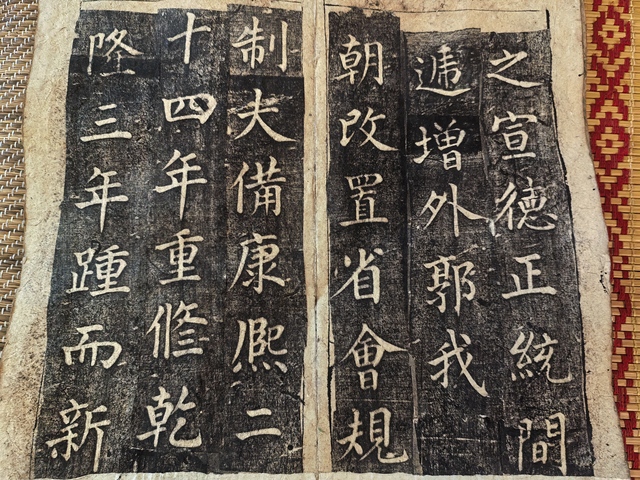 之宣德正統間
遞増外郭我
朝改置省會規
制夫備康熈二
十四年重修乾
隆三年踵而新